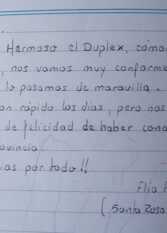 Hermoso el Duplex, cómo
, nos vamos muy conforme
lo pasamos de maravilla.
an rápido los días, pero nos
de felicidad de haber cono
ovincia.
ias por todo!!
Flia
(Santa Rosa